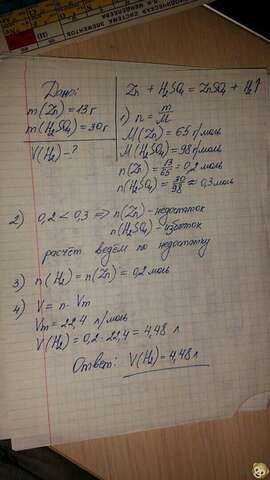 ПЕРИОДИЧЕСКАЯ СИСТЕМА ЭЛЕМЕНТОВ
Д.И. МЕНДЕЛЕЕВА
Дано:
m(Zn) = 13 г
m(H₂SO₄) = 30 г
V(H₂) - ?
Zn + H₂SO₄ = ZnSO₄ + H₂↑
1) n = m/M
M(Zn) = 65 г/моль
M(H₂SO₄) = 98 г/моль
n(Zn) = 13/65 = 0,2 моль
n(H₂SO₄) = 30/98 ≈ 0,3 моль
2) 0,2 < 0,3 ⇒ n(Zn) - недостаток
n(H₂SO₄) - избыток
расчёт ведём по недостатку
3) n(H₂) = n(Zn) = 0,2 моль
4) V = n · Vm
Vm = 22,4 л/моль
V(H₂) = 0,2 · 22,4 = 4,48 л
Ответ: V(H₂) = 4,48 л